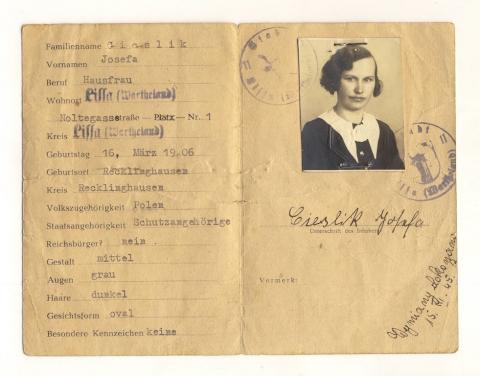 Familienname Cieslik
Vornamen Josefa
Beruf Hausfrau
Wohnort Lissa (Wartheland)
Noltegassestraße — Platz — Nr. 1
Kreis Lissa (Wartheland)
Geburtstag 16. März 1906
Geburtsort Recklinghausen
Kreis Recklinghausen
Volkszugehörigkeit Polen
Staatsangehörigkeit Schutzangehörige
Reichsbürger? nein
Gestalt mittel
Augen grau
Haare dunkel
Gesichtsform oval
Besondere Kennzeichen keine
Cieslik Josefa
Unterschrift des Inhabers
Vermerk:
Wymiany dokonano
(Wartheland)